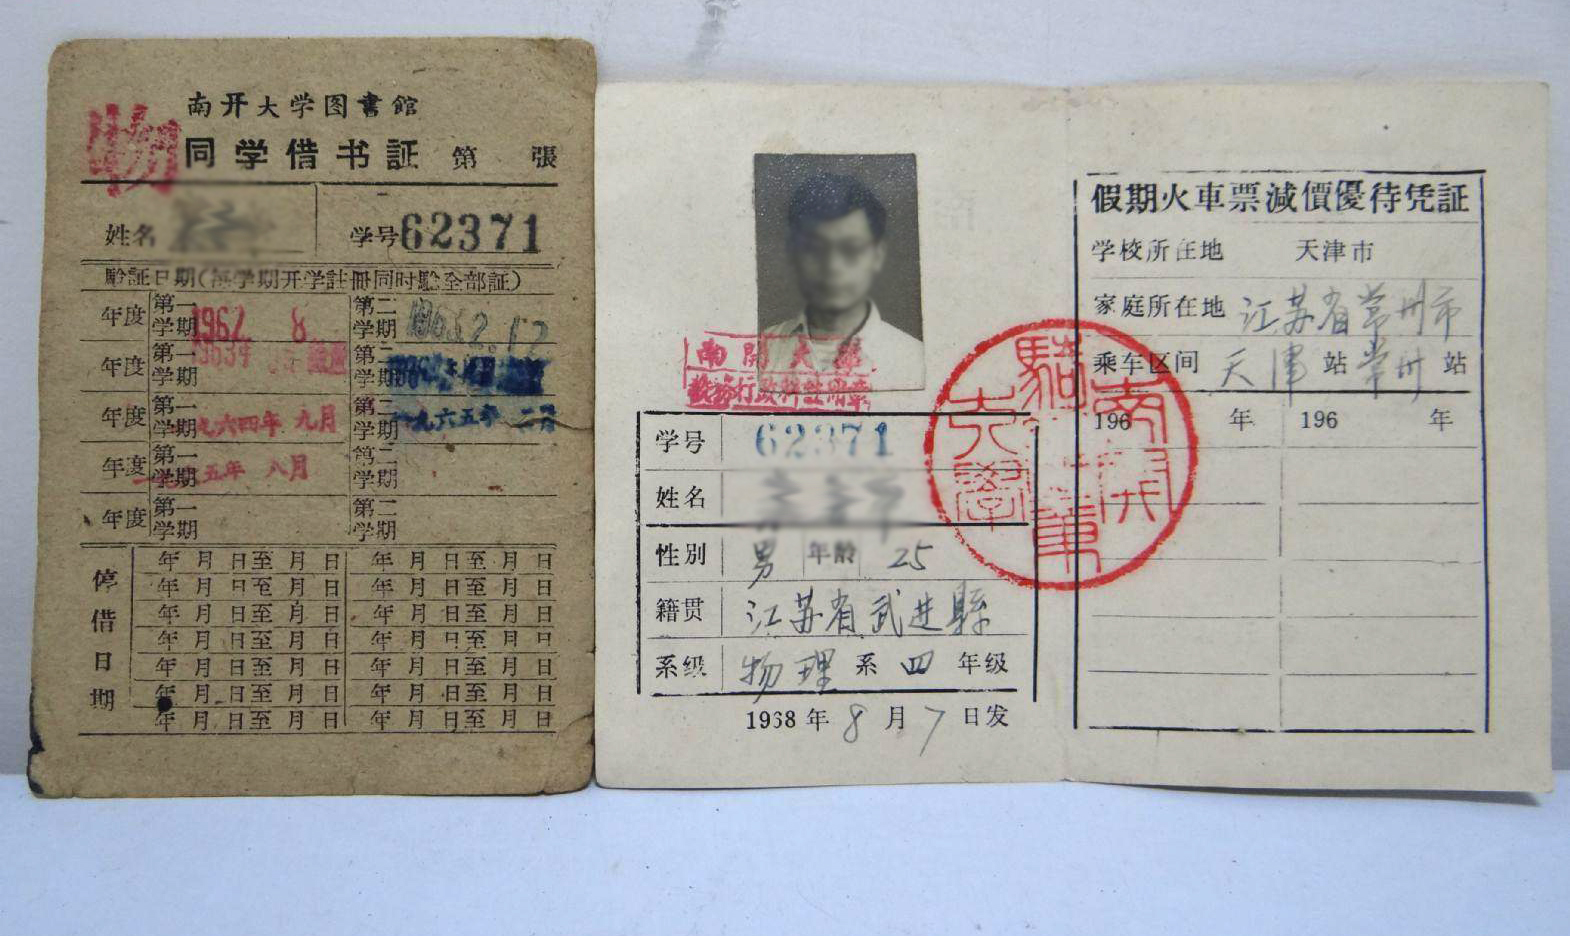 南开大学图書館
物
同学借书証 第 張
姓名 学号62371
驗証日期(每学期开学註冊同时驗全部証)
年度 第一学期 1962 8 第二学期 1963.2.17
年度 第一学期 第二学期
年度 第一学期 一九六四年 九月 第二学期 一九六五年 二月
年度 第一学期 一九六五年 八月 第二学期
年度 第一学期 第二学期
停借日期
年 月 日至 月 日 年 月 日至 月 日
年 月 日至 月 日 年 月 日至 月 日
年 月 日至 月 日 年 月 日至 月 日
年 月 日至 月 日 年 月 日至 月 日
年 月 日至 月 日 年 月 日至 月 日
年 月 日至 月 日 年 月 日至 月 日
年 月 日至 月 日 年 月 日至 月 日
南開大學
教務行政科註冊章
学号 62371
姓名
性别 男 年齡 25
籍贯 江苏省武进縣
系级 物理 系 四 年级
1968年8月7日发
南开大學
假期火車票減價優待凭証
学校所在地 天津市
家庭所在地 江苏省常州市
乘车区间 天津 站 常州 站
196 年 196 年